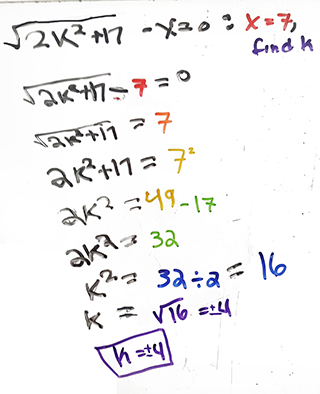 √2k²+17 - x=0 : x=7,
find k
√2k²+17 - 7 = 0
√2k²+17 = 7
2k²+17 = 7²
2k² = 49-17
2k² = 32
k² = 32÷2 = 16
k = √16 = ±4
k=±4